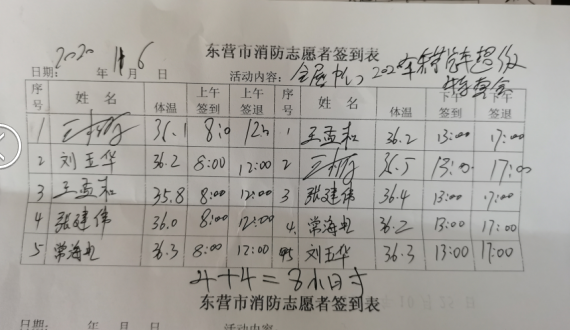 东营市消防志愿者签到表
日期: 2020 年 11 月 6 日 活动内容: 会展中心 202
序号 姓 名 体温 上午签到 上午签退 序号 姓 名 体温 下午签到 下午签退
1 36.1 8:0 12: 1 王孟和 36.2 13:00 17:00
2 刘玉华 36.2 8:00 12:00 2 36.5 13:00 17:00
3 王孟和 35.8 8:00 12:00 3 张建伟 36.4 13:00 17:00
4 张建伟 36.0 8:00 12:00 4. 常海 36.2 13:00 17:00
5 常海 36.3 8:00 12:00 5 刘玉华 36.3 13:00 17:00
4+4=8小时
东营市消防志愿者签到表
日期: 年 月 日 活动内容